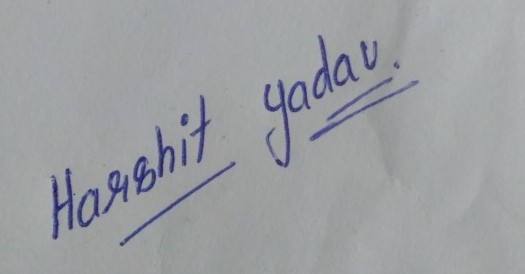 Harshit yadav.